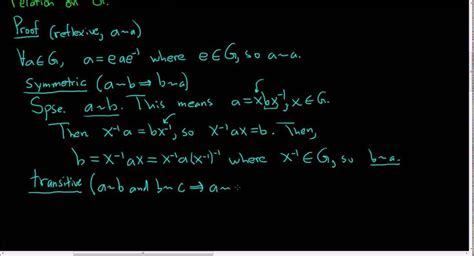 relation on G.
Proof (reflexive, a~a)
∀a∈G, a = eae⁻¹ where e∈G, so a~a.
Symmetric (a~b ⇒ b~a)
Spse. a~b. This means a = xbx⁻¹, x∈G.
Then x⁻¹a = bx⁻¹, so x⁻¹ax = b. Then,
b = x⁻¹ax = x⁻¹a(x⁻¹)⁻¹ where x⁻¹∈G, so b~a.
transitive (a~b and b~c ⇒ a~